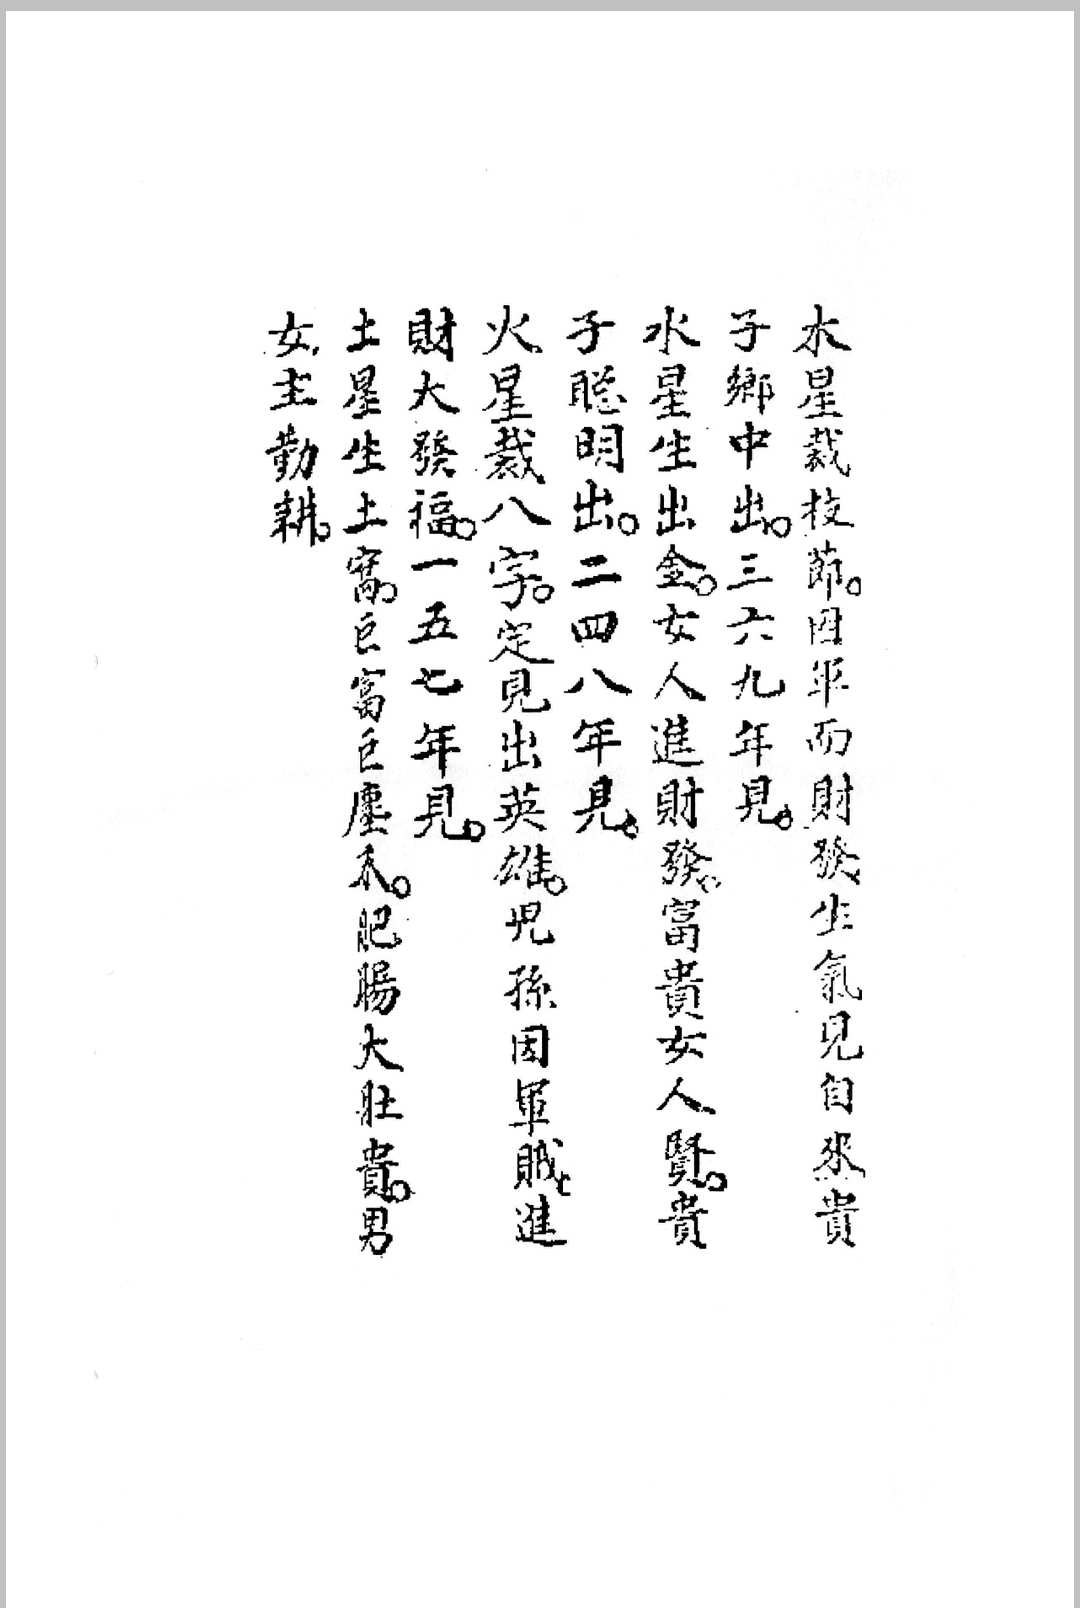 木星裁枝節。因軍而財發生氣見自來貴
子鄉中出。三六九年見。
水星生出金。女人進財發。富貴女人賢。貴
子聰明出。二四八年見。
火星裁八字。定見出英雄。児孫因軍賊進
財大發福。一五七年見。
土星生土窩。巨富巨塵禾。肥腸大壯貴。男
女主勤耕。